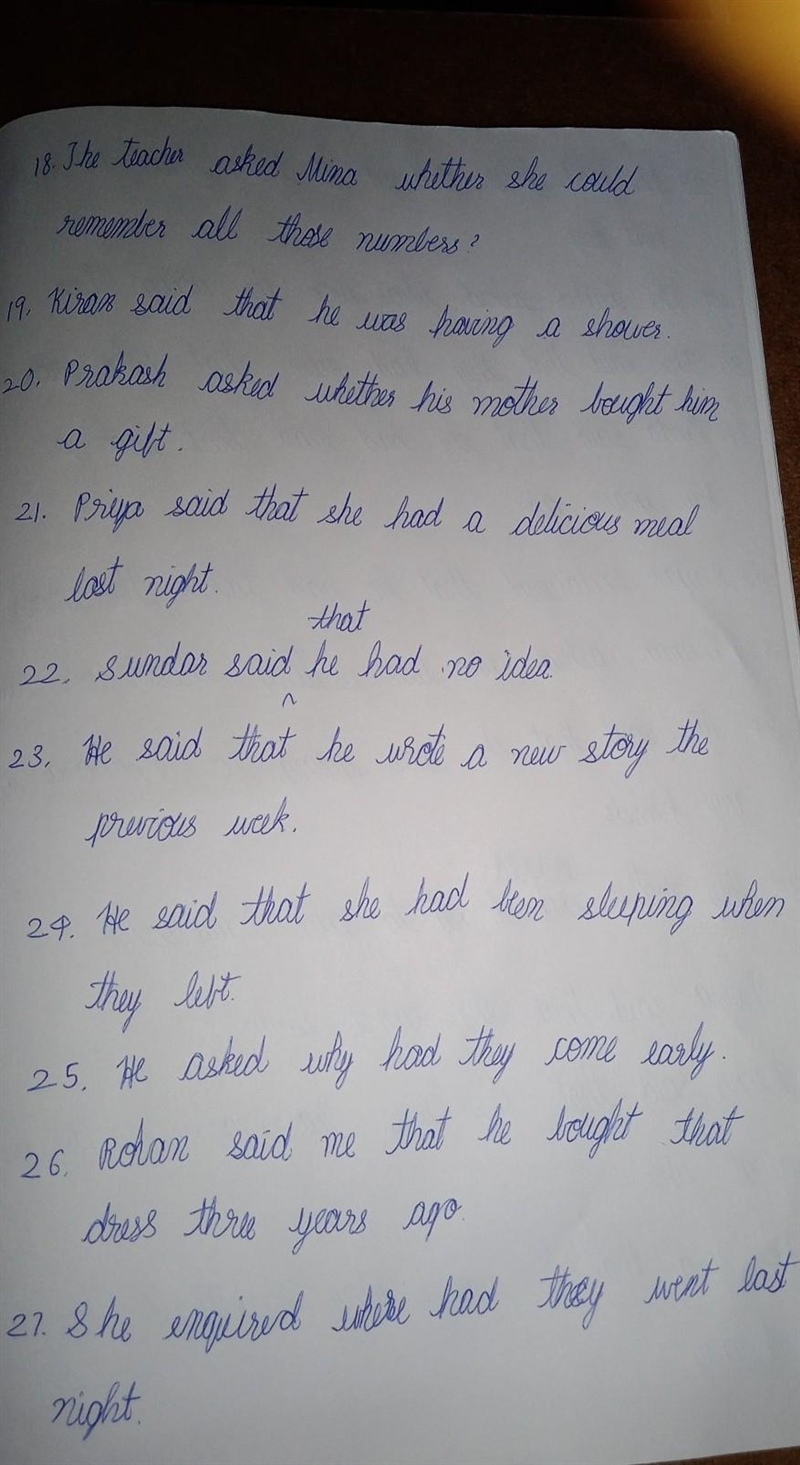 18. The teacher asked Mina whether she could
remember all those numbers?
19. Kiran said that he was having a shower.
20. Prakash asked whether his mother bought him
a gift.
21. Priya said that she had a delicious meal
last night.
that
22. Sundar said he had no idea.
^
23. He said that he wrote a new story the
previous week.
24. He said that she had been sleeping when
they left.
25. He asked why had they come early.
26. Rohan said me that he bought that
dress three years ago.
27. She enquired where had they went last
night.